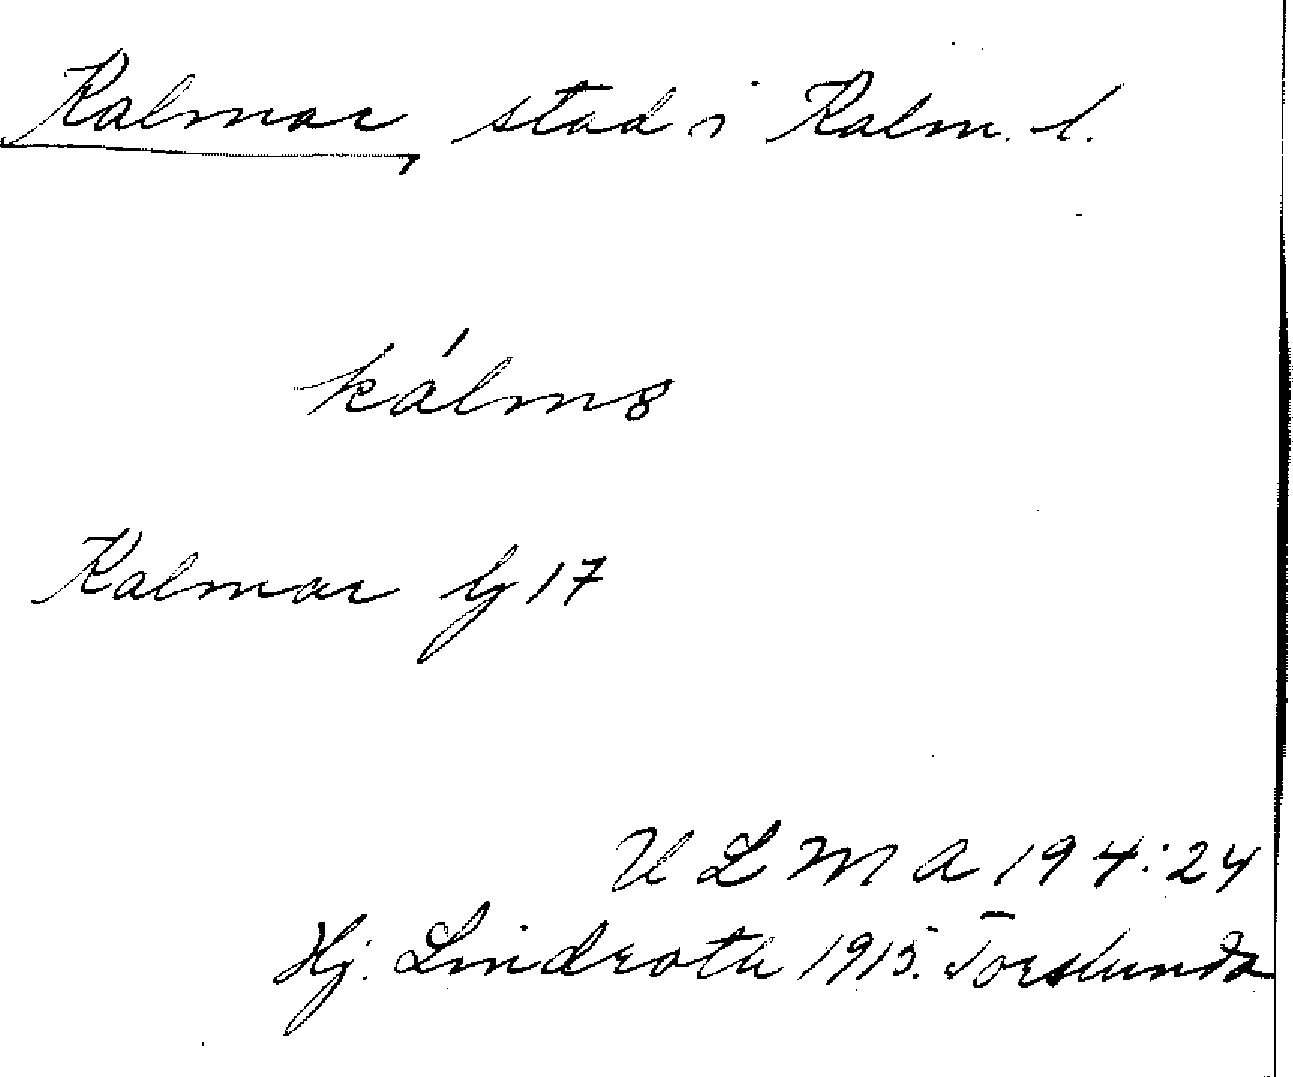 Kalmar, stad i Kalm. l.
kálm8
Kalmar lj 17
ULMA 194:24
Hj. Lindroth 1915. Torslunda